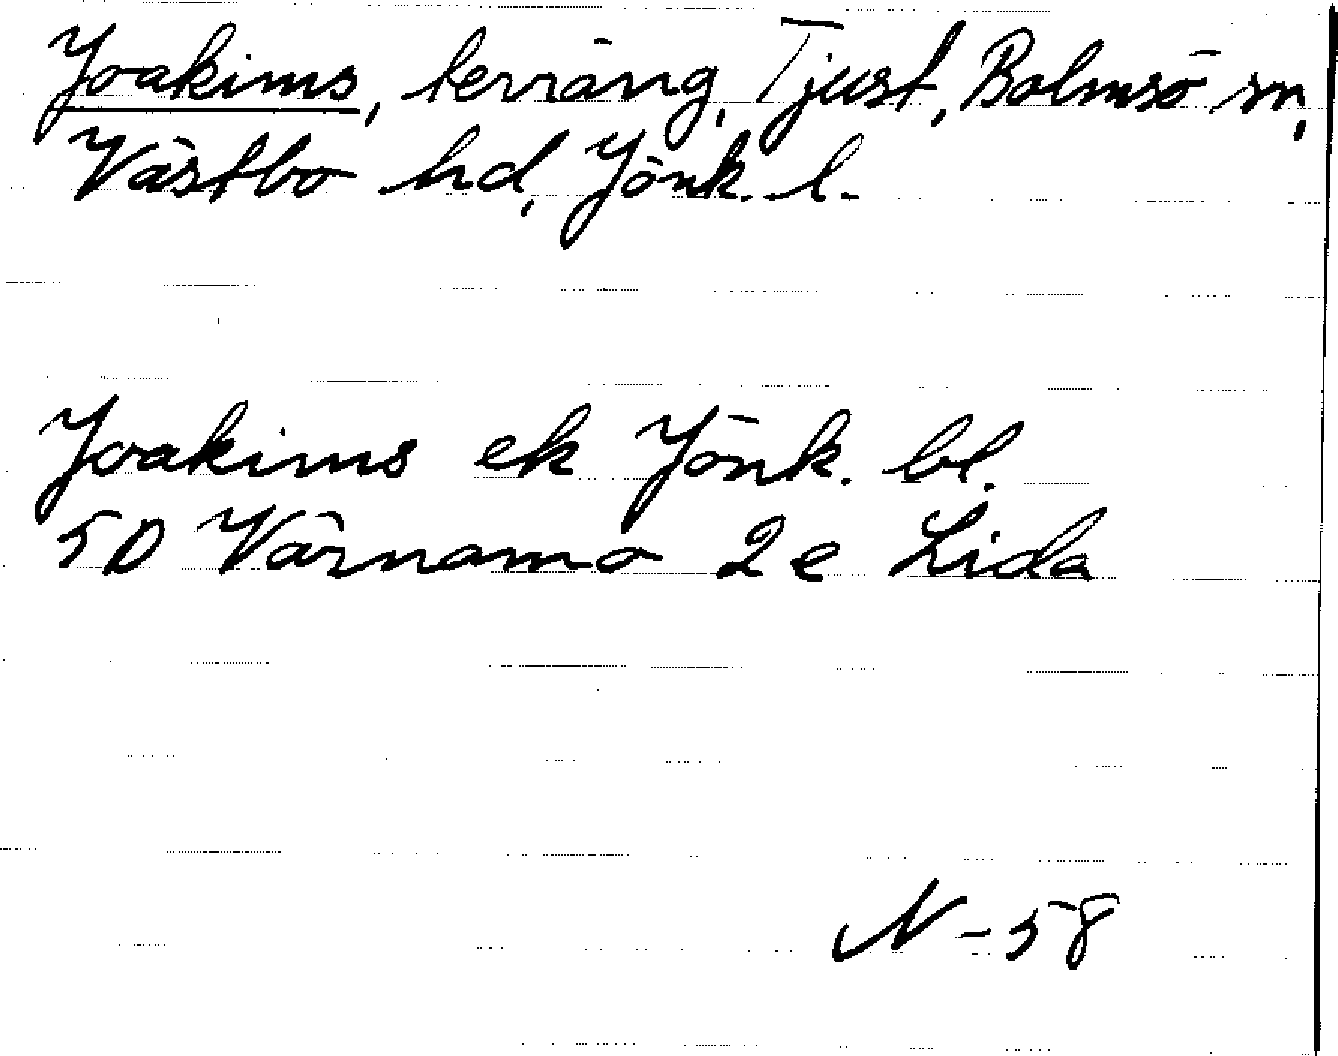 Joakims, terräng, Tjust, Bolmsö sn,
Västbo hd, Jönk. l.
Joakims ek Jönk. bl.
5D Värnamo 2e Lida
N-58